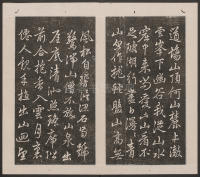 道場山頂何山麓上徹
雲峯下幽谷我從山水
窟中來尚愛此山看不
足陂湖行盡白漫漫青
山忽作龍蛇盤山高無
風松自響誤認石齒號
驚湍山僧不放山泉出
屋底清池照瑤席階
前合抱香入雲月裏
僊人親手植出山回望